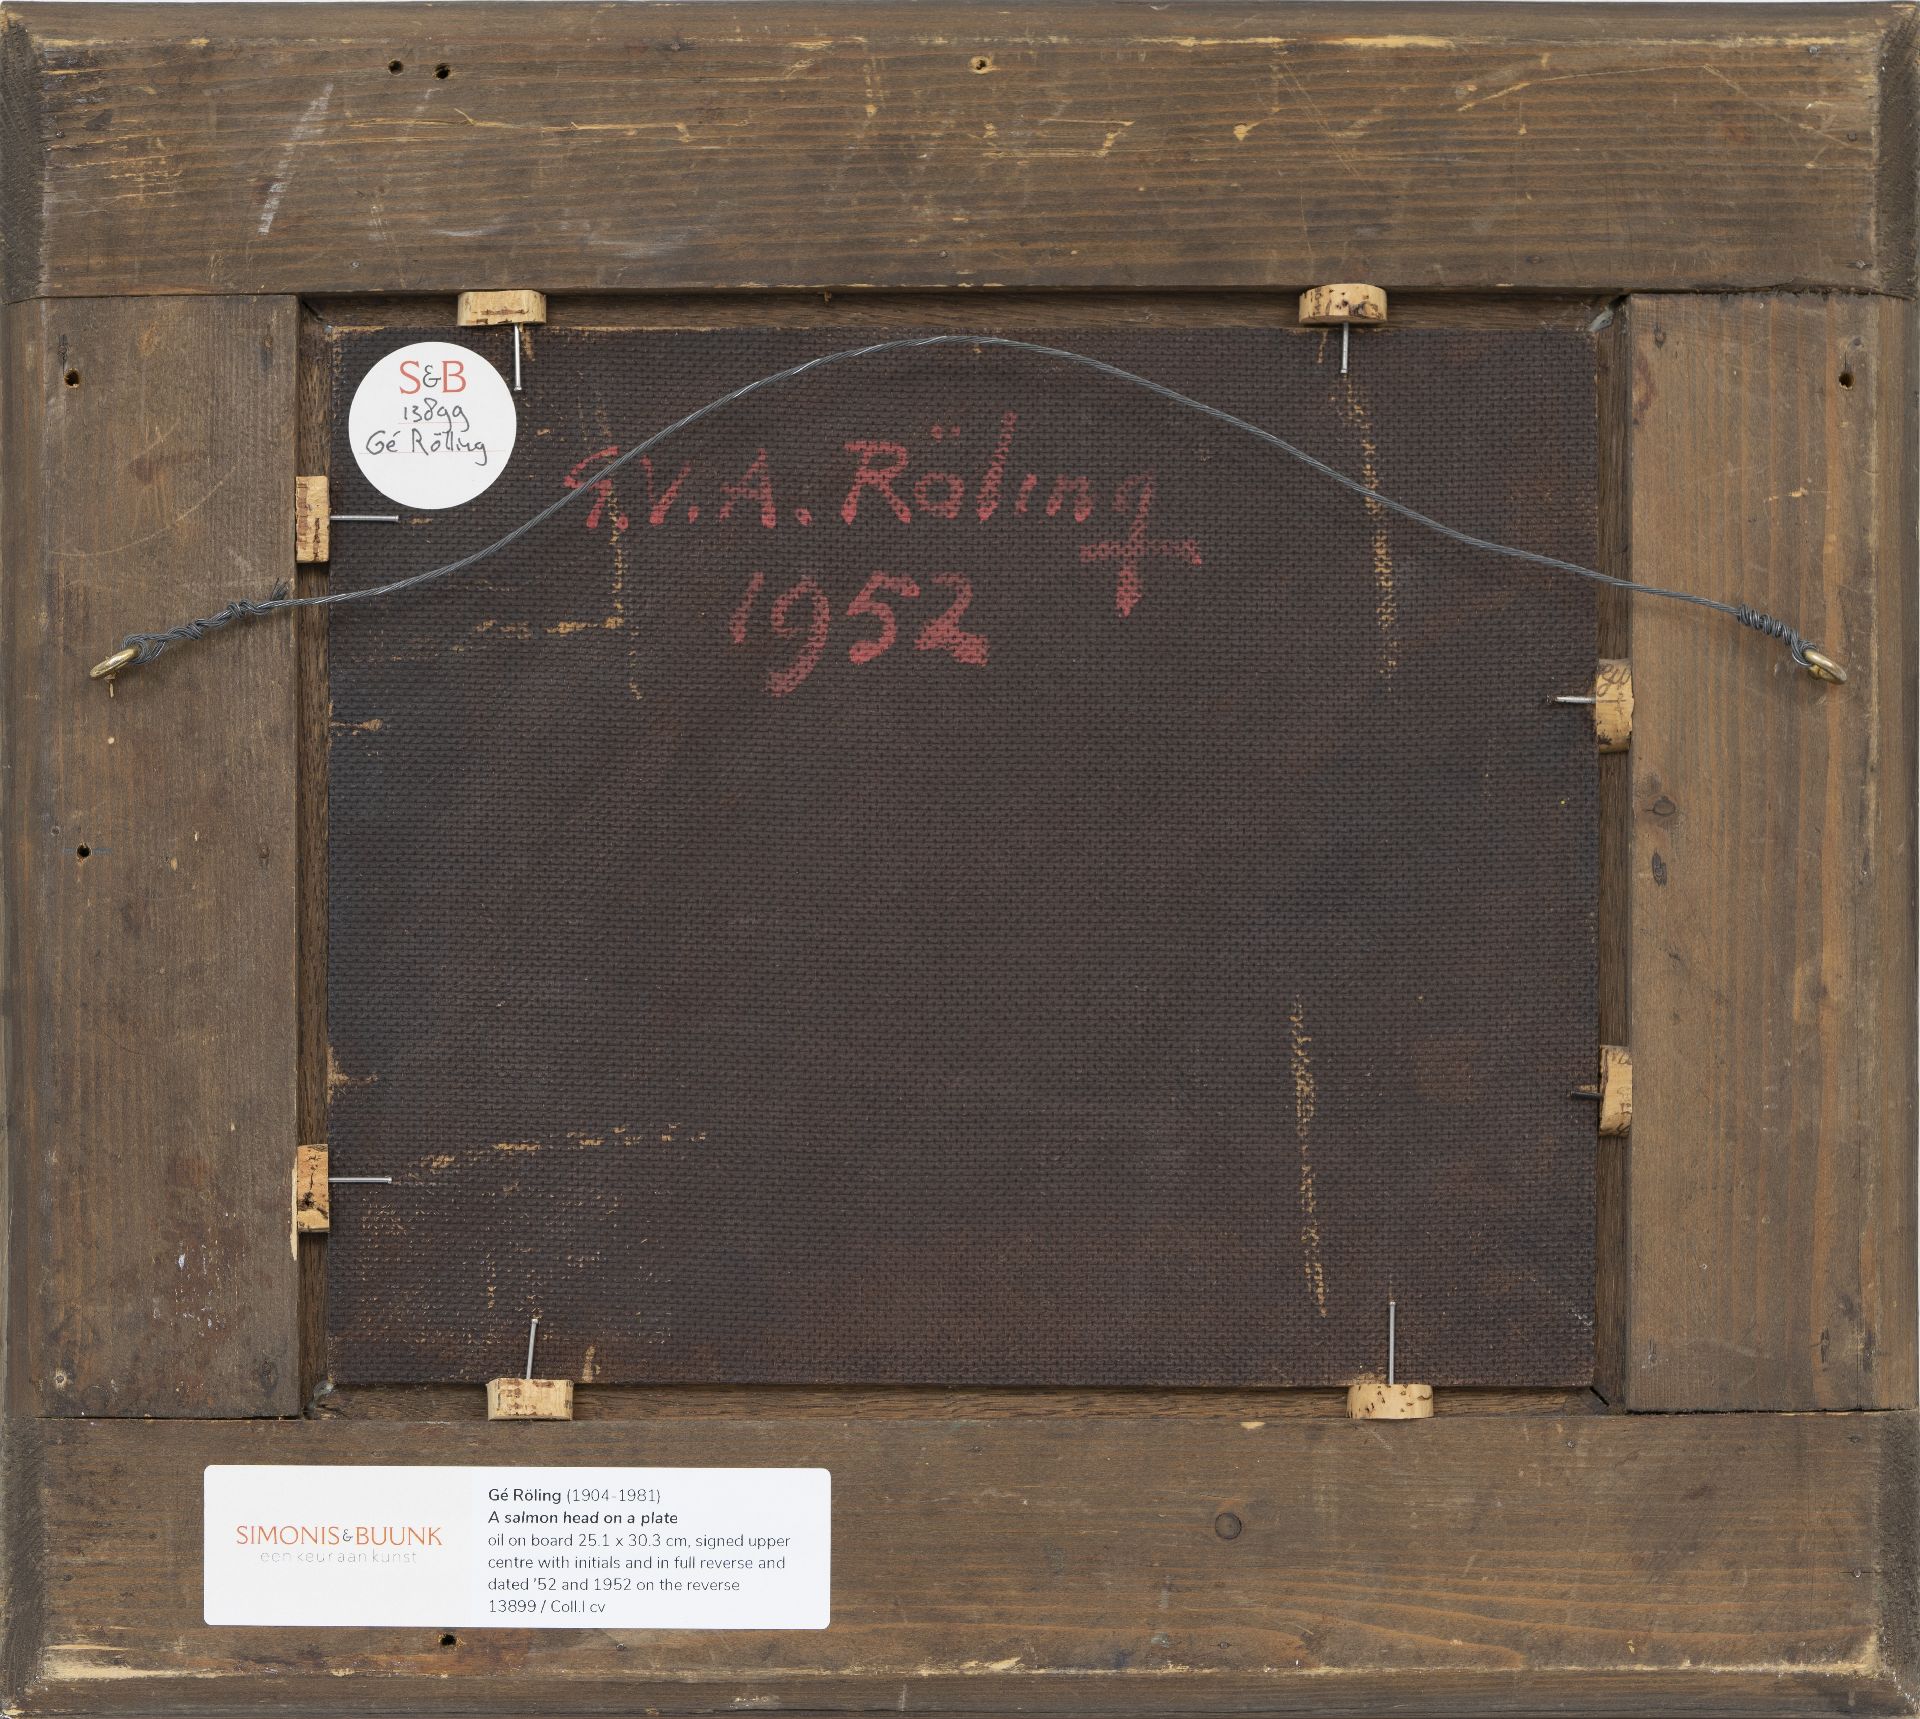 S&B
13899
Gé Röling
G.V.A. Röling
1952
SIMONIS&BUUNK
een keur aan kunst
Gé Röling (1904-1981)
A salmon head on a plate
oil on board 25.1 x 30.3 cm, signed upper
centre with initials and in full reverse and
dated '52 and 1952 on the reverse
13899 / Coll.I cv